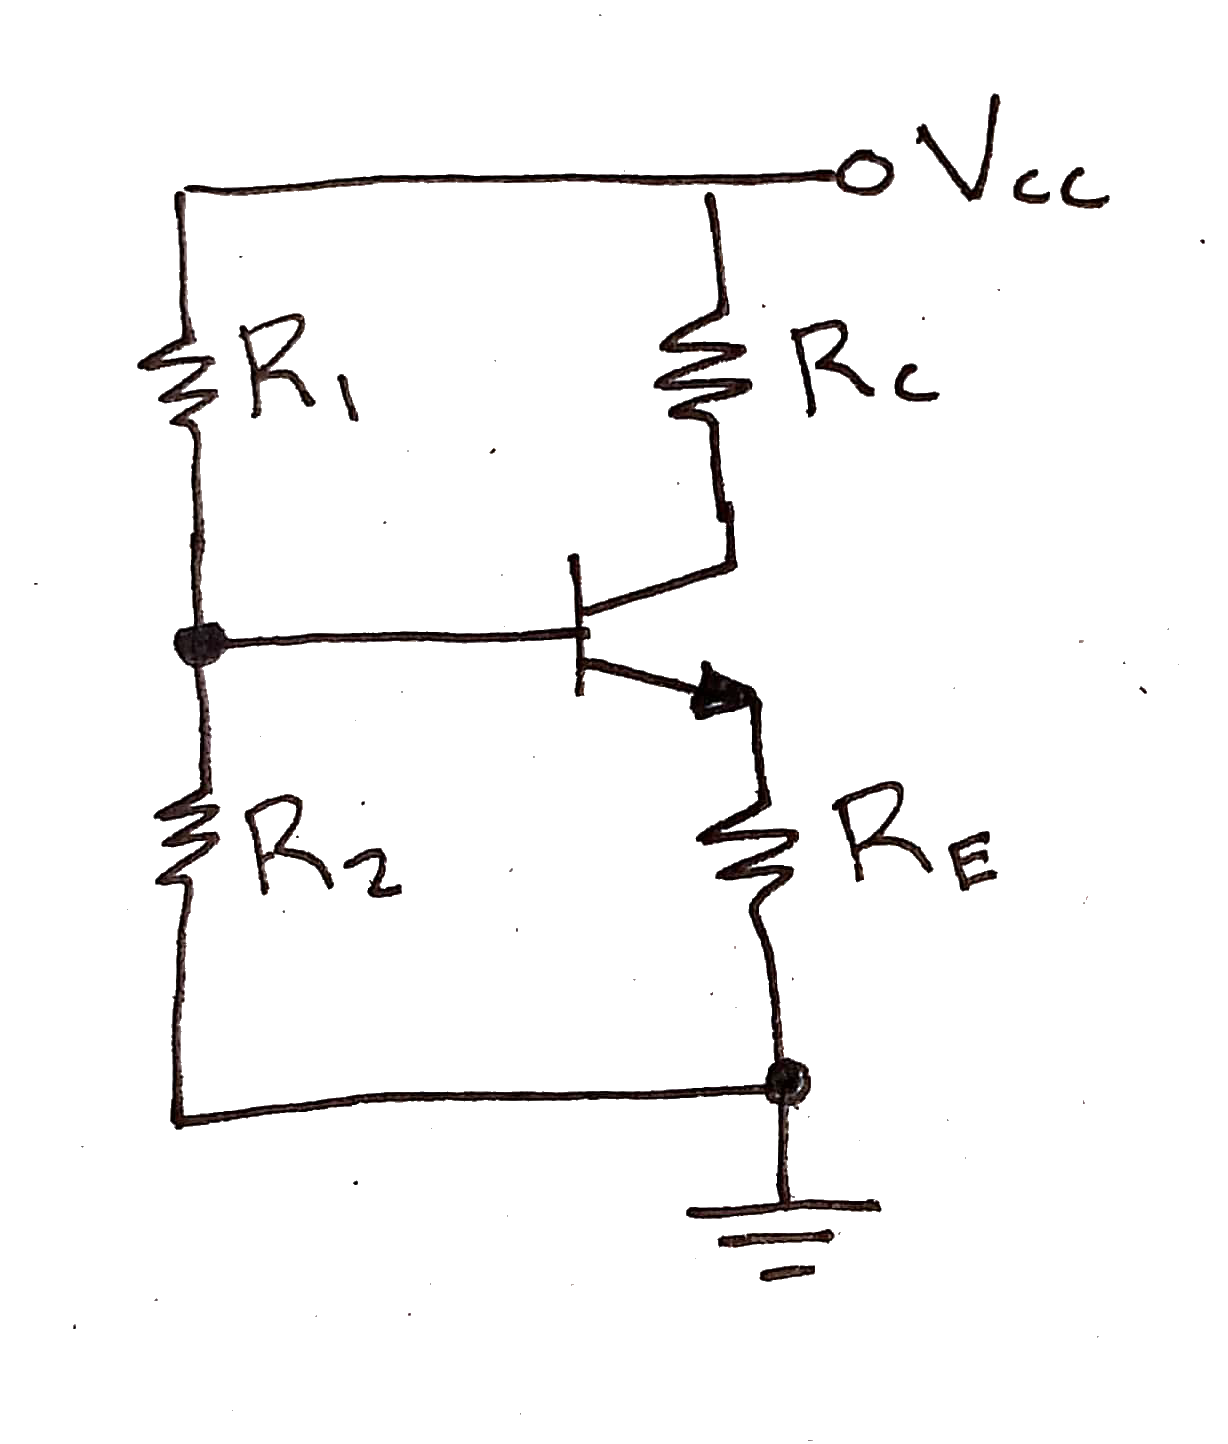 Vcc
R1
Rc
R2
RE